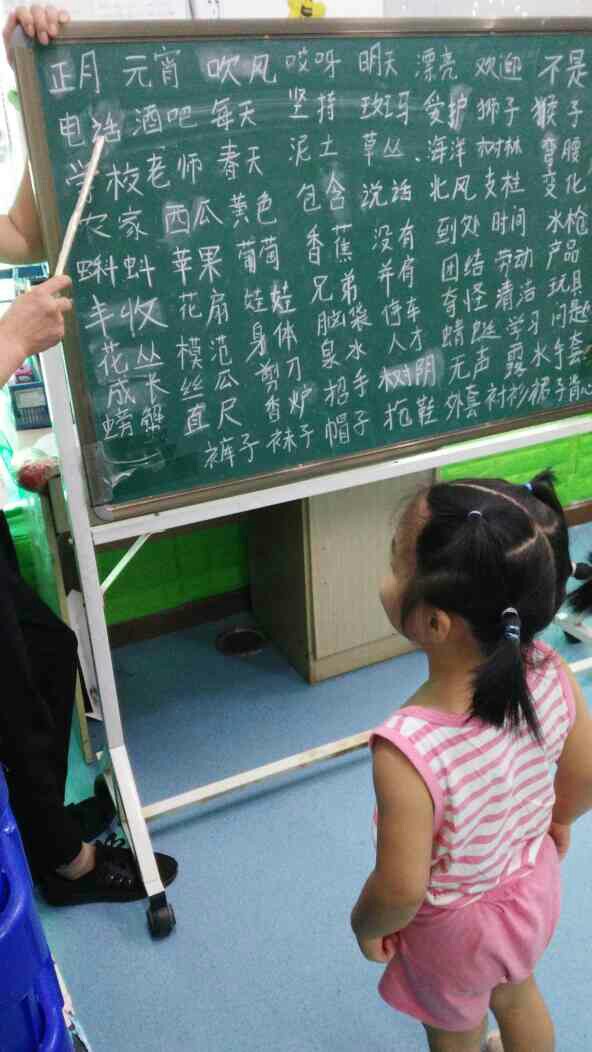 正月 元宵 吹风 哎呀 明天 漂亮 欢迎 不是
电话 酒吧 每天 坚持 斑马 爱护 狮子 猴子
学校 老师 春天 泥土 草丛 海洋 树林 弯腰
农家 西瓜 黄色 包含 说话 北风 支柱 变化
蝌蚪 苹果 葡萄 香蕉 没有 到处 时间 水枪
丰收 花扇 娃娃 兄弟 并肩 团结 劳动 产品
花丛 模范 身体 脑袋 停车 奇怪 清洁 玩具
成长 丝瓜 剪刀 泉水 人才 蜻蜓 学习 问题
螃蟹 直尺 香炉 招手 树阴 无声 露水 手套
裤子 袜子 帽子 拖鞋 外套 衬衫 裙子 背心